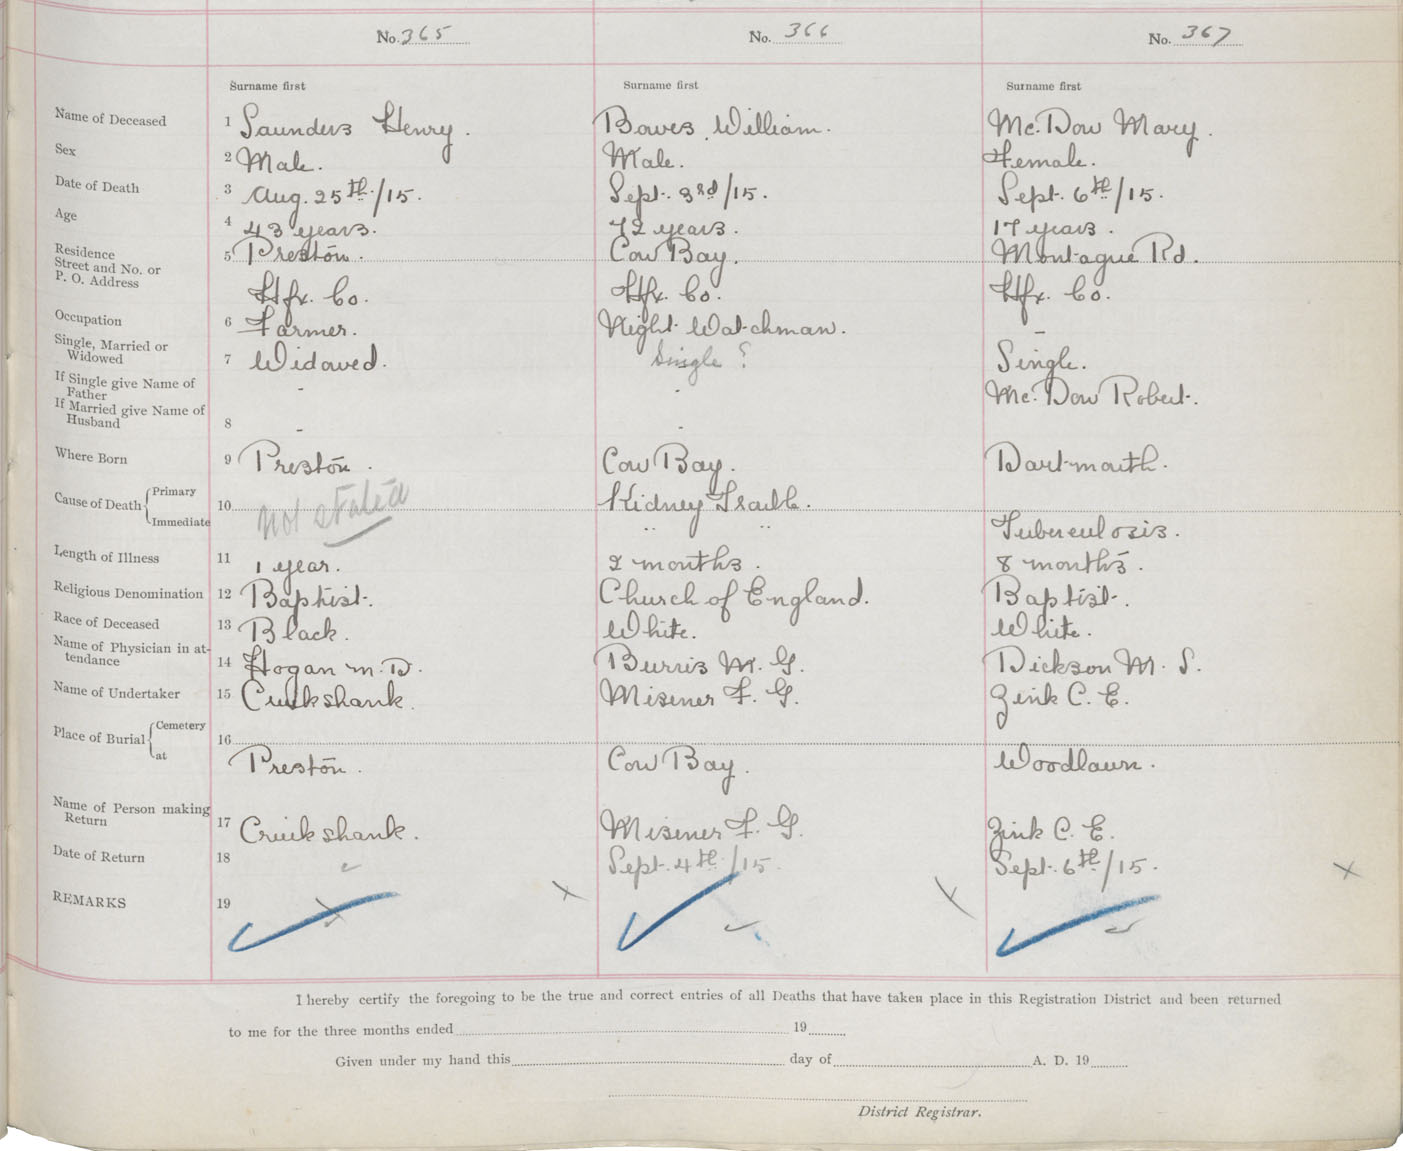 No. 365 No. 366 No. 367
Surname first Surname first Surname first
Name of Deceased 1 Saunders Henry. Bowes William. Mc. Dow Mary.
Sex 2 Male. Male. Female.
Date of Death 3 Aug. 25th/15. Sept. 3rd/15. Sept. 6th/15.
Age 4 43 years. 72 years. 17 years.
Residence 5 Preston. Cow Bay. Montague Rd.
Street and No. or
P. O. Address Hfx. Co. Hfx. Co. Hfx. Co.
Occupation 6 Farmer. Night Watchman. -
Single, Married or
Widowed 7 Widowed. Single ? Single.
If Single give Name of
Father - - Mc. Dow Robert.
If Married give Name of
Husband 8 - -
Where Born 9 Preston. Cow Bay. Dartmouth.
Cause of Death Primary 10 Not stated Kidney Trouble.
Immediate " " Tuberculosis.
Length of Illness 11 1 year. 2 months. 8 months.
Religious Denomination 12 Baptist. Church of England. Baptist.
Race of Deceased 13 Black. White. White.
Name of Physician in at-
tendance 14 Hogan M. D. Burris M. G. Dickson M. S.
Name of Undertaker 15 Cruikshank. Misener F. G. Zink C. E.
Place of Burial Cemetery 16
at Preston. Cow Bay. Woodlawn.
Name of Person making
Return 17 Cruikshank. Misener F. G. Zink C. E.
Date of Return 18 Sept. 4th/15 Sept. 6th/15.
REMARKS 19
I hereby certify the foregoing to be the true and correct entries of all Deaths that have taken place in this Registration District and been returned
to me for the three months ended 19
Given under my hand this day of A. D. 19
District Registrar.